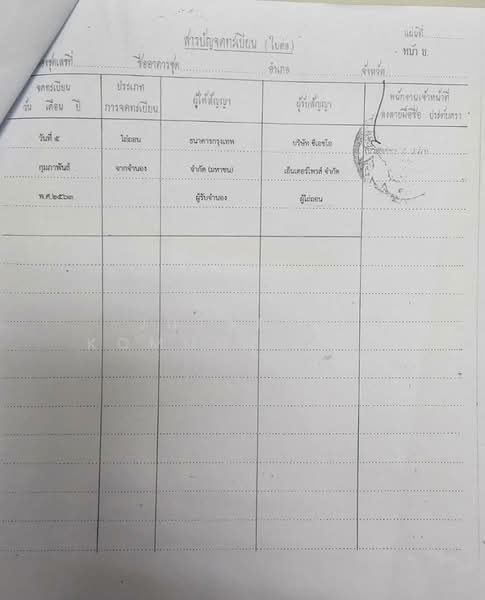 แผ่นที่
สารบัญจดทะเบียน (ใบต่อ)
หน้า ข.
ชุดเลขที่ ชื่ออาคารชุด อำเภอ จังหวัด
จดทะเบียน ประเภท ผู้ให้สัญญา ผู้รับสัญญา พนักงานเจ้าหน้าที่
วัน เดือน ปี การจดทะเบียน ลงลายมือชื่อ ประทับตรา
วันที่ ๕ ไถ่ถอน ธนาคารกรุงเทพ บริษัท ซีเอชโอ
กุมภาพันธ์ จากจำนอง จำกัด (มหาชน) เอ็นเตอร์ไพรส์ จำกัด
พ.ศ.๒๕๖๓ ผู้รับจำนอง ผู้ไถ่ถอน